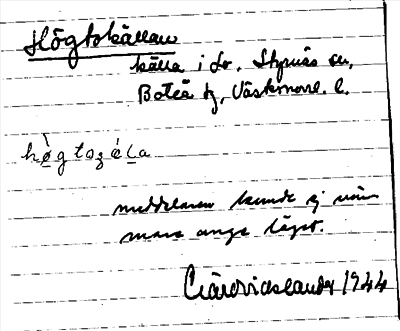 Högtokällan
källa i Lv. Styrnäs sn,
Boteå tg, Västernorrl. l.
høgtozɛ́la
meddelaren kunde ej när-
mare ange läget.
1944